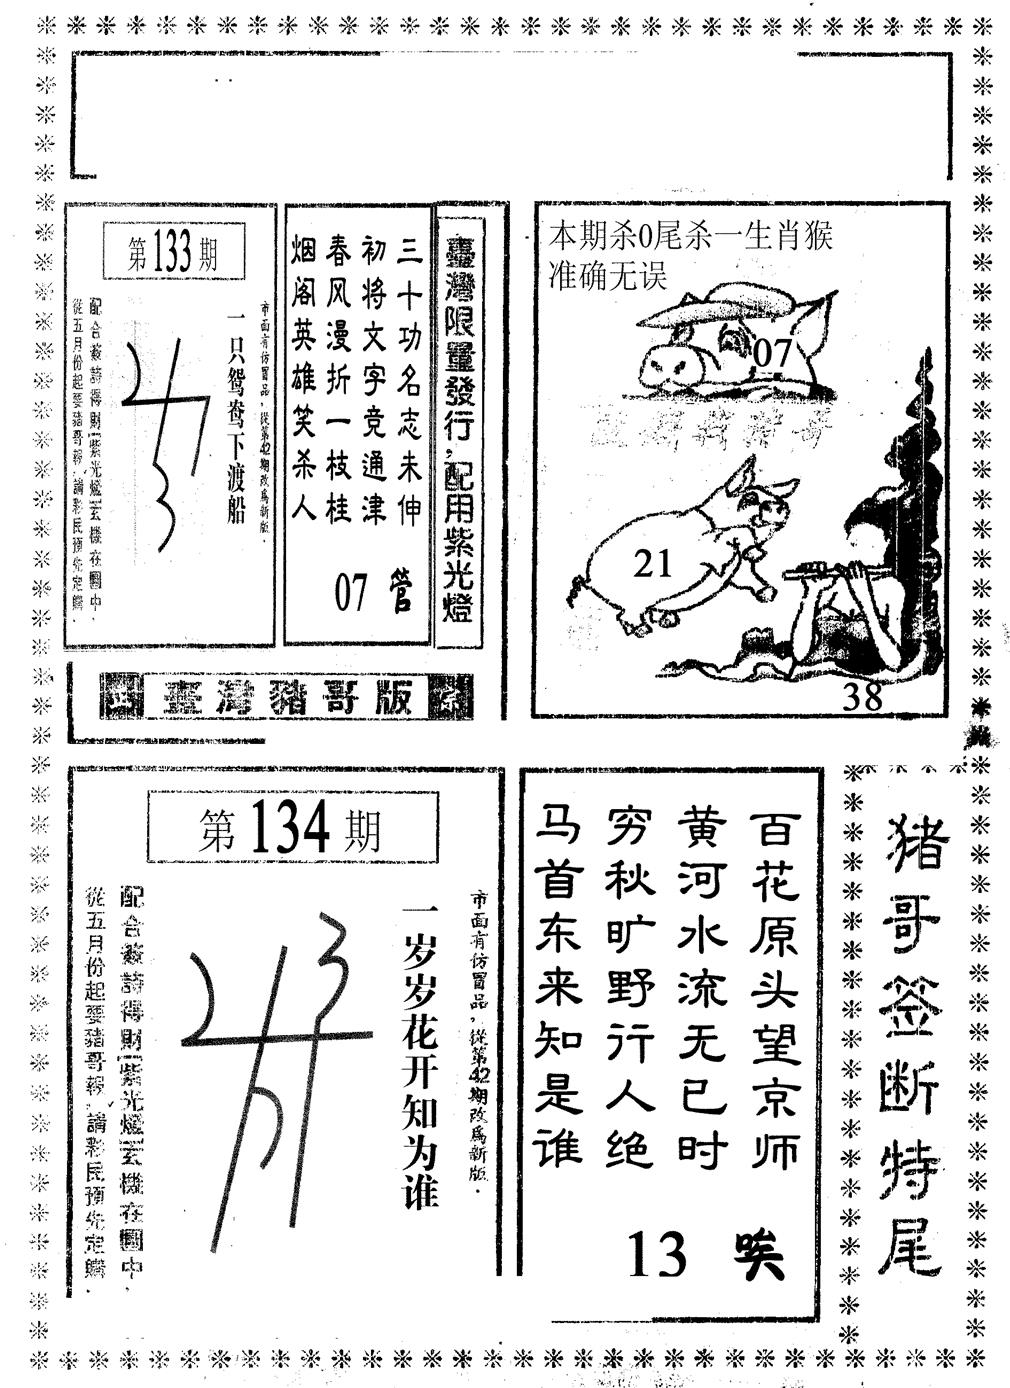 第133期
市面有仿冒品，從第42期改為新版．
一只鸳鸯下渡船
配合簽詩得財『紫光燈』玄機在圖中．
從五月份起要豬哥報，請彩民預先定購．
三十功名志未伸
初将文字竞通津
春风漫折一枝桂
烟阁英雄笑杀人
07 管
臺灣限量發行，配用紫光燈
臺灣豬哥版
本期杀0尾杀一生肖猴
准确无误
07
21
38
第134期
市面有仿冒品，從第42期改為新版．
一岁岁花开知为谁
配合簽詩得財『紫光燈』玄機在圖中．
從五月份起要豬哥報，請彩民預先定購．
百花原头望京师
黄河水流无已时
穷秋旷野行人绝
马首东来知是谁
13 唉
猪哥签断特尾